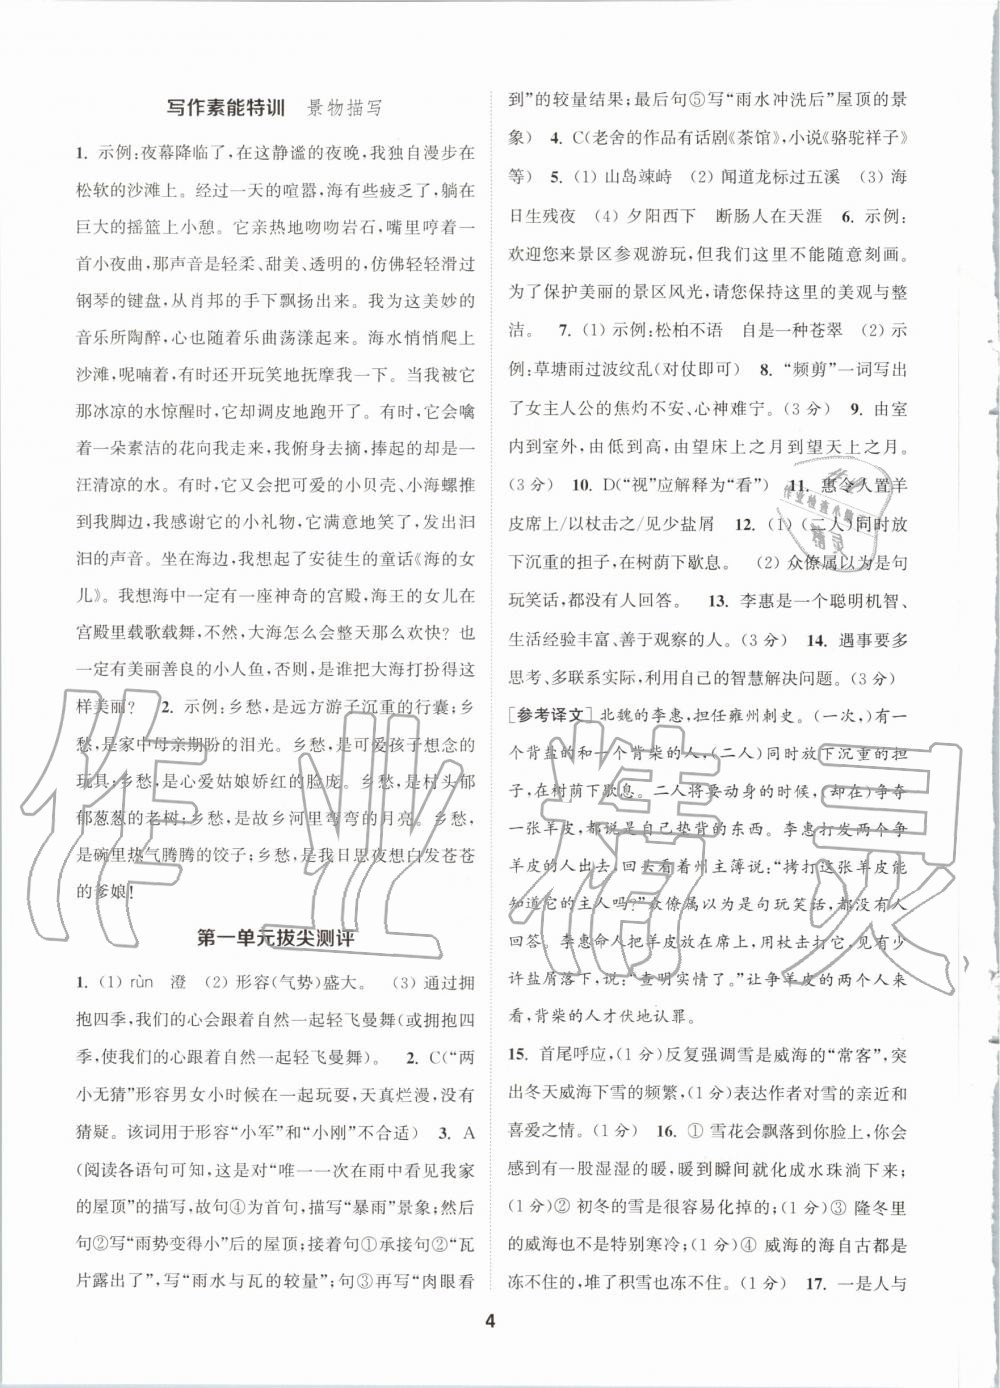 写作素能特训　景物描写
1. 示例:夜幕降临了,在这静谧的夜晚,我独自漫步在
松软的沙滩上。经过一天的喧嚣,海有些疲乏了,躺在
巨大的摇篮上小憩。它亲热地吻吻岩石,嘴里哼着一
首小夜曲。那声音是轻柔、甜美、透明的,仿佛轻轻滑过
钢琴的键盘,从肖邦的手下飘扬出来。我为这美妙的
音乐所陶醉,心也随着乐曲荡漾起来。海水悄悄爬上
沙滩,呢喃着,有时还开玩笑地抚摩我一下。当我被它
那冰凉的水惊醒时,它却调皮地跑开了。有时,它会噙
着一朵素洁的花向我走来,我俯身去摘,捧起的却是一
汪清凉的水。有时它把可爱的小贝壳、小海螺推
到我脚边,我感谢它的小礼物,它满意地笑了,发出汩
汩的声音。坐在海边,我想起了安徒生的童话《海的女
儿》。我想海中一定有一座神奇的宫殿,海王的女儿在
宫殿里载歌载舞,不然,大海怎么会整天那么欢快?也
一定有美丽善良的小人鱼,否则,是谁把大海打扮得这
样美丽?　2. 示例:乡愁,是远方游子沉重的行囊;乡
愁,是家中母亲期盼的泪光。乡愁,是可爱孩子想念的
玩具;乡愁,是心爱姑娘娇红的脸庞。乡愁,是村头郁
郁葱葱的老树;乡愁,是故乡河里弯弯的月亮。乡愁,
是碗里热气腾腾的饺子;乡愁,是我日思夜想白发苍苍
的爹娘!
第一单元拔尖测评
1. (1) rùn　澄　(2) 形容(气势)盛大。　(3) 通过拥
抱四季,我们的心会跟着自然一起轻飞曼舞(或拥抱四
季,使我们的心跟着自然一起轻飞曼舞)。　2. C(“两
小无猜”形容男女小时候在一起玩耍,天真烂漫,没有
猜疑。该词用于形容“小军”和“小刚”不合适)　3. A
(阅读各语句可知,这是对“唯一一次在雨中看见我家
的屋顶”的描写,故句④为首句,描写“暴雨”景象;第二
句②写“雨势变得小”后的屋顶;接着句①承接句②“瓦
片露出了”,写“雨水与瓦的较量”;句③再写“肉眼看
到”的较量结果;最后句⑤写“雨水冲洗后”屋顶的景
象)　4. C(老舍的作品有话剧《茶馆》,小说《骆驼祥子》
等)　5. (1) 山岛竦峙　(2) 闻道龙标过五溪　(3) 海
日生残夜　(4) 夕阳西下　断肠人在天涯　6. 示例:
欢迎您来景区参观游玩,但我们这里不能随意刻画。
为了保护美丽的景区风光,请您保持这里的美观与整
洁。　7. (1) 示例:松柏不语　自是一种苍翠　(2) 示
例:草塘雨过波纹乱(对仗即可)　8. “频剪”一词写出
了女主人公的焦灼不安、心神难宁。(3 分)　9. 由室
内到室外,由低到高,由望床上之月到望天上之月。
(3分)　10. D(“视”应解释为“看”)　11. 惠令人置羊
皮席上/以杖击之/见少盐屑　12. (1) (二人)同时放
下沉重的担子,在树荫下歇息。　(2) 众僚属以为是句
玩笑话,都没有人回答。　13. 李惠是一个聪明机智、
生活经验丰富、善于观察的人。(3 分)　14. 遇事要多
思考、多联系实际,利用自己的智慧解决问题。(3分)
[参考译文] 北魏的李惠,担任雍州刺史。(一次,)有一
个背盐的和一个背柴的人,(二人)同时放下沉重的担
子,在树荫下歇息。二人将要动身的时候,(却在)争夺
一张羊皮,都说是自己垫背的东西。李惠发出两个争
羊皮的人出去,回头看着州主簿说:“拷打这张羊皮能
知道它的主人吗?”众僚属以为是句玩笑话,都没有人
回答。李惠命人把羊皮放在席子上,用棍杖击打它,见少
许盐屑落下,说:“查明实情了。”让争羊皮的两个人来
看,背柴的人才伏地认罪。
15. 首尾呼应,(1 分)反复强调雪是威海的“常客”,突
出冬天威海下雪的频繁,(1 分)表达作者对雪的亲近和
喜爱之情。(1 分)　16. ① 雪花会飘落到你脸上,你会
感到有一股湿湿的暖,暖到瞬间就化成水珠淌下来;
(1 分)② 初冬的雪是很容易化掉的;(1 分)③ 隆冬里
的威海却不是特别寒冷;(1 分)④ 威海的海自古都是
没冻住的,堆了积雪也冻不住。(1 分)　17. 一是人与
4
作业精灵
作业检查小助手
精灵